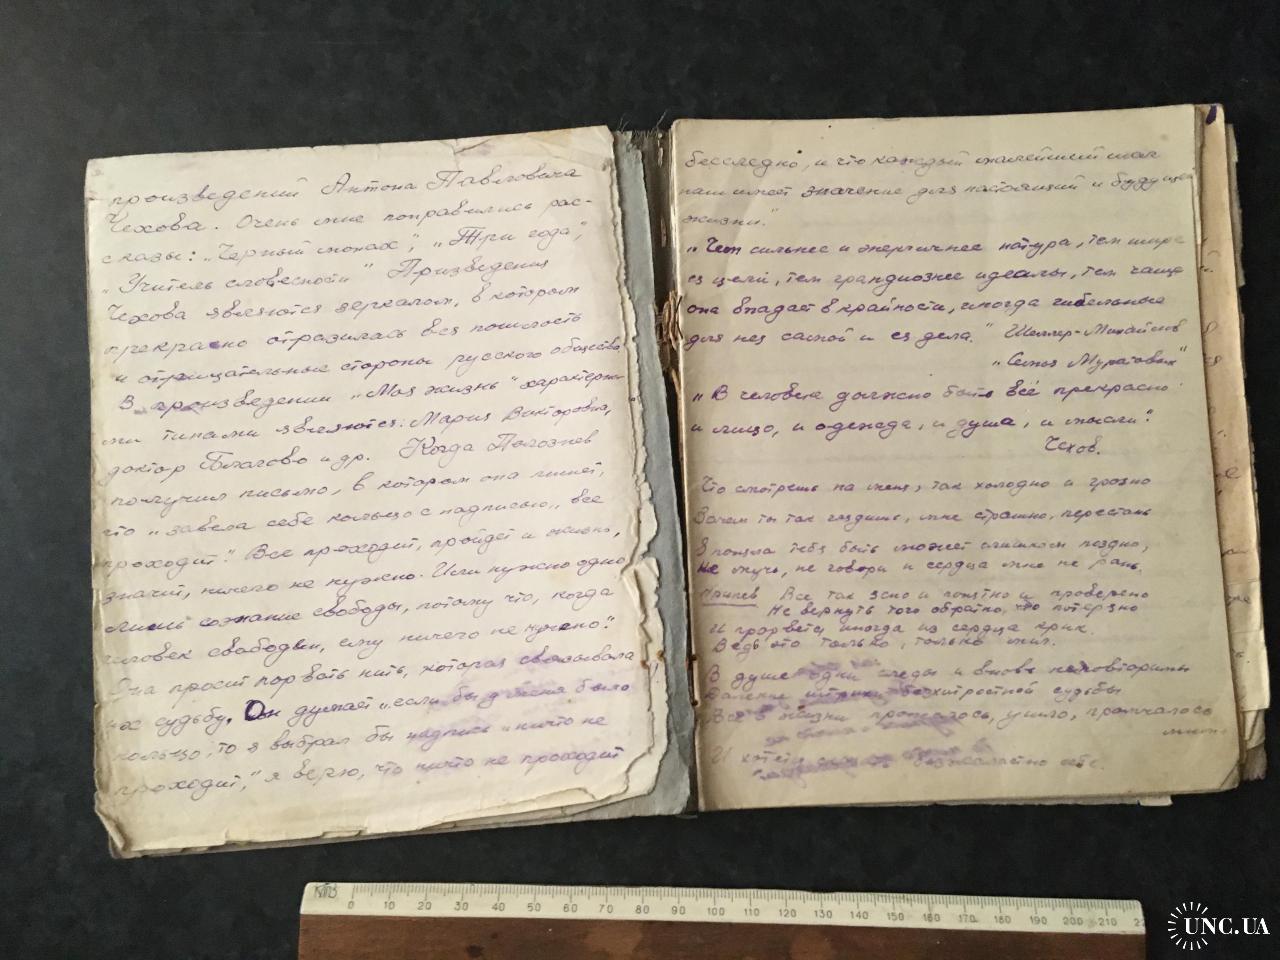 произведений Антона Павловича
Чехова. Очень мне понравились рас-
сказы: „Черный монах“, „Три года“,
„Учитель словесности“ Призведения
Чехова являются зеркалом, в котором
прекрасно отразилась вся пошлость
и отрицательные стороны русского общества
В произведении „Моя жизнь“ характерны-
ми типами являются: Мария Викторовна,
доктор Благово и др. Когда Полознев
получил письмо, в котором она пишет,
что „завела себе кольцо с надписью „все
проходит“. Все проходит, пройдет и жизнь,
значит, ничего не нужно. Или нужно одно
лишь сознание свободы, потому что, когда
человек свободен, ему ничего не нужно."
Она просит порвать нить, которая связывала
их судьбу. Он думает „если бы у меня было
кольцо, то я выбрал бы надпись „ничто не
проходит,“ я верю, что ничто не проходит
бесследно, и что каждый малейший шаг
наш имеет значение для настоящей и будущей
жизни."
„Чем сильнее и энергичнее натура, тем шире
ее цели, тем грандиознее идеалы, тем чаще
она впадает в крайности, иногда гибельные
для нея самой и ея дела." Шеллер-Михайлов
„Семья Муратовых"
„В человеке должно быть всё прекрасно
и лицо, и одежда, и душа, и мысли".
Чехов.
Что смотришь на меня, так холодно и грозно
Зачем ты так глядишь, мне страшно, перестань
Я поняла тебя быть может слишком поздно,
Не мучь, не говори и сердца мне не рань.
Припев Все так ясно и понятно и проверено
Не вернуть того обратно, что потеряно
И прорвется иногда из сердца крик.
Ведь это только, только миг.
В душе одни следы и вновь неповторимы
Далекие безхитростной судьбы
Все в жизни пронеслось, ушло, промчалось
мимо
И хотели безжалостно
КПВ
0 10 20 30 40 50 60 70 80 90 100 110 120 130 140 150 160 170 180 190 200 210 22
UNC.UA